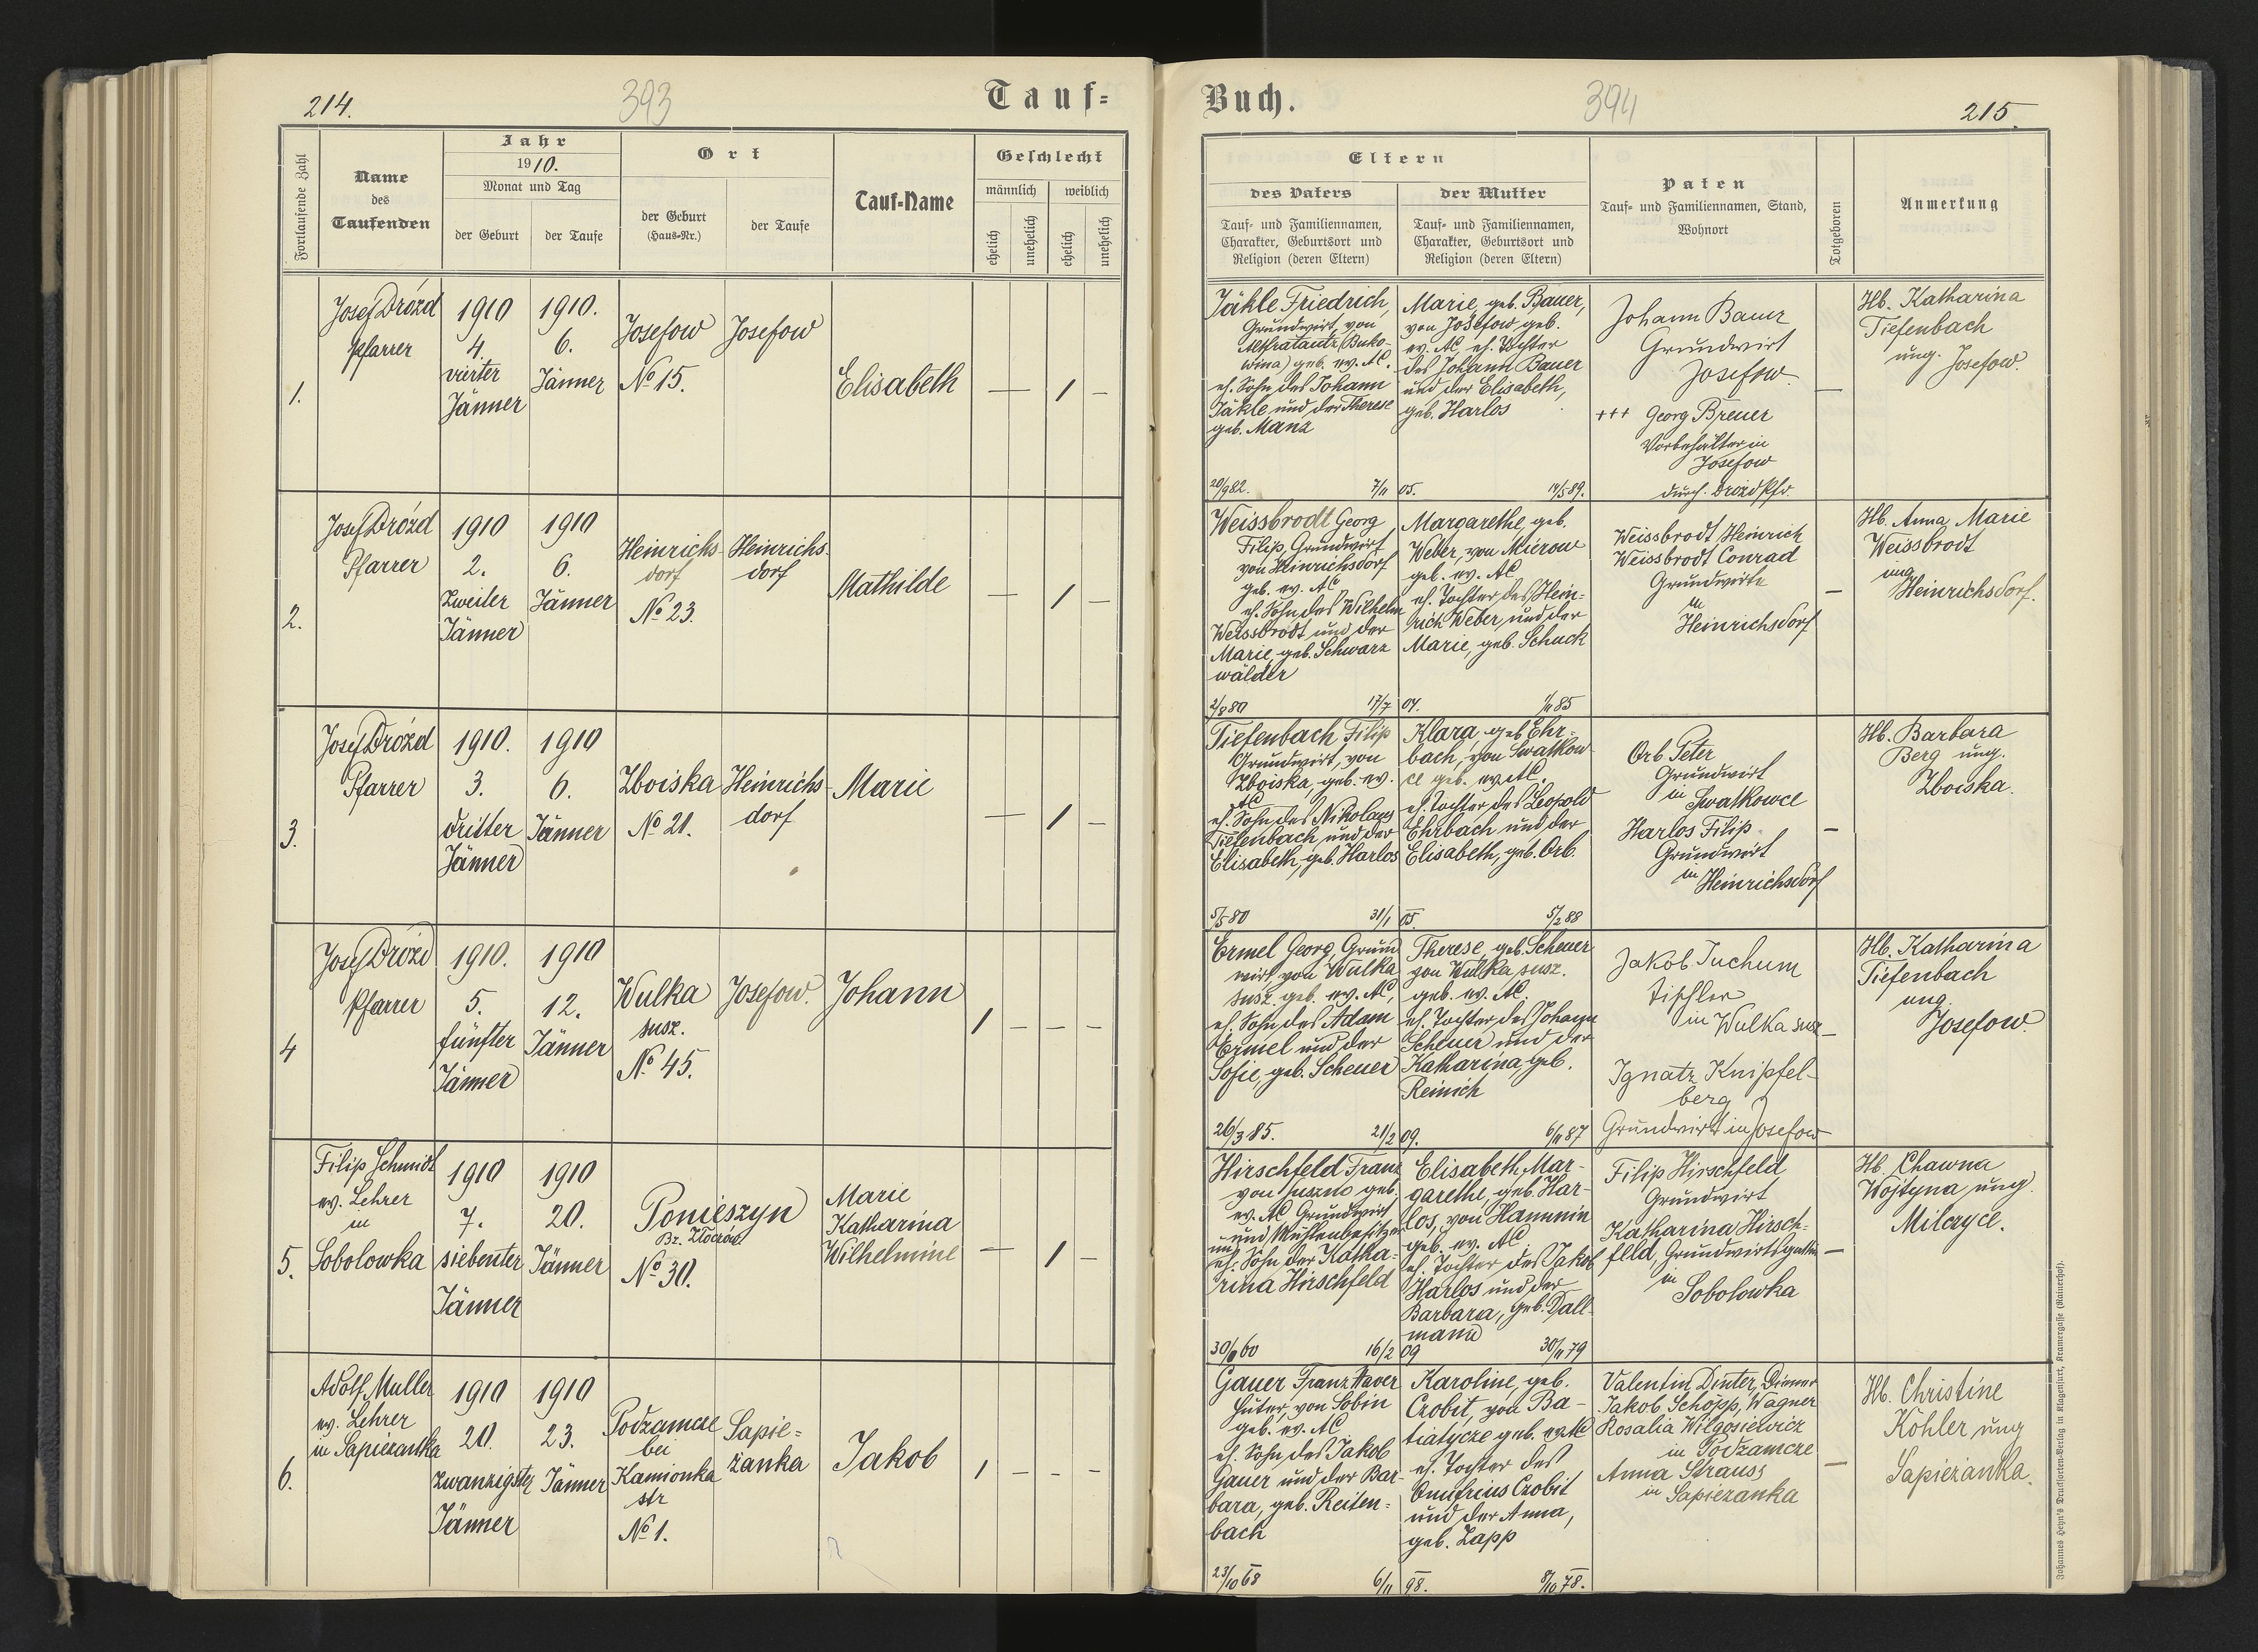 214.
393
Tauf=
Fortlaufende Zahl
Name
des
Taufenden
Jahr
1910.
Monat und Tag
der Geburt
der Taufe
Ort
der Geburt
(Haus-Nr.)
der Taufe
Tauf-Name
Geschlecht
männlich
weiblich
ehelich
unehelich
ehelich
unehelich
1.
Josef Drózd
Pfarrer
1910
4.
vierter
Jänner
1910.
6.
Jänner
Josefow
No 15.
Josefow
Elisabeth
— 1 –
2.
Josef Drózd
Pfarrer
1910
2.
Zweiter
Jänner
1910
6.
Jänner
Heinrichs-
dorf
No 23.
Heinrichs-
dorf
Mathilde
— 1 –
3.
Josef Drózd
Pfarrer
1910.
3.
dritter
Jänner
1910
6.
Jänner
Zboiska
No 21.
Heinrichs-
dorf
Marie
— 1 –
4
Josef Drózd
Pfarrer
1910.
5.
fünfter
Jänner
1910
12.
Jänner
Wulka
susz.
No 45.
Josefow.
Johann
1 – – –
5.
Filip Schmidt
ev. Lehrer
in
Sobolowka
1910
7.
siebenter
Jänner
1910
20.
Jänner
Ponieszyn
Bz. Złoczów
No 30.
Marie
Katharina
Wilhelmine
— 1 –
6.
Adolf Muller
ev. Lehrer
in Sapiezanka
1910
20.
zwanzigster
Jänner
1910
23.
Jänner
Podzamcze
bei
Kamionka
str
No 1.
Sapie=
żanka
Jakob
1 – – –
Buch.
394
215.
Eltern
des Vaters
Tauf- und Familiennamen,
Charakter, Geburtsort und
Religion (deren Eltern)
der Mutter
Tauf- und Familiennamen,
Charakter, Geburtsort und
Religion (deren Eltern)
Paten
Tauf- und Familiennamen, Stand,
Wohnort
Totgeboren
Anmerkung
Jäkle Friedrich,
Grundwirt, von
Altfratautz (Buko-
wina) geb. ev. AC.
eh. Sohn des Johann
Jäkle und der Therese
geb. Manz
20/9 82.
7/11 05.
Marie, geb. Bauer,
von Josefow, geb.
ev. AC, eh. Tochter
des Johann Bauer
und der Elisabeth,
geb. Harlos
14/5 89.
Johann Bauer
Grundwirt
Josefow
+++ Georg Breuer
Vorbehälter in
Josefow
durch. Drozd Pfr.
—
Hb. Katharina
Tiefenbach
ung. Josefow.
Weissbrodt Georg
Filip, Grundwirt
von Heinrichsdorf
geb. ev. AC
eh. Sohn des Wilhelm
Weissbrodt und der
Marie, geb. Schwarz
wälder
2/8 80
17/7 04.
Margarethe, geb.
Weber, von Mierow
geb. ev. AC
eh. Tochter des Hein=
rich Weber und der
Marie, geb. Schuck
1/11 85
Weissbrodt Heinrich
Weissbrodt Conrad
Grundwirte
in
Heinrichsdorf
–
Hb. Anna Marie
Weissbrodt
ung
Heinrichsdorf.
Tiefenbach Filip
Grundwirt, von
Zboiska, geb. ev.
AC
eh. Sohn des Nikolaus
Tiefenbach und der
Elisabeth, geb. Harlos
5/5 80
31/1 05.
Klara, geb Ehr-
bach, von Swatkow-
ce geb. ev. AC.
eh. Tochter des Leopold
Ehrbach und der
Elisabeth, geb. Orb.
5/2 88
Orb Peter
Grundwirt
in Swatkowce
Harlos Filip
Grundwirt
in Heinrichsdorf
–
Hb. Barbara
Berg ung.
Zboiska.
Ermel Georg, Grund
wirt, von Wulka
susz. geb. ev. AC,
eh. Sohn des Adam
Ermel und der
Sofie, geb. Scheuer
26/3 85.
21/2 09.
Therese, geb. Scheuer
von Wulka susz.
geb. ev. AC.
eh. Tochter des Johann
Scheuer und der
Katharina, geb.
Reinich
6/11 87
Jakob Tuchum
Tischler
in Wulka susz
Ignatz Knipfel-
berg
Grundwirt in Josefow
–
Hb. Katharina
Tiefenbach
ung.
Josefow.
Hirschfeld Franz
ev. AC Grundwirt
und Mühlenbesitzer
eh. Sohn der Katha=
rina Hirschfeld
16/2 09
Elisabeth Mar-
garethe, geb. Har-
los, von Hammin
geb. ev. AC.
eh. Tochter des Jakob
Harlos und der
Barbara, geb. Dall-
mann
30/11 79
Filip Hirschfeld
Grundwirt
Katharina Hirsch=
feld, Grundwirtsgattin
in
Sobolowka
—
Hb. Chawna
Wojtyna ung.
Milczyce.
Gauer Franz Xaver
Huter, von Sobin
geb. ev. AC
eh. Sohn des Jakob
Gauer und der Bar-
bara, geb. Reiten=
bach
23/10 68
6/11 98.
Karoline, geb.
Czobit, von Ba-
tiatycze geb. ev. AC
eh. Tochter des
Onufrius Czobit
und der Anna,
geb. Zapp
8/10 78.
Valentin Dinter, Diener
Jakob Schöpp, Wagner
Rosalia Wilgosiewicz
in Podzamcze
Anna Strauss
in Sapiezanka
—
Hb. Christine
Köhler ung
Sapieżanka.
Johannes Heyn's Drucksorten-Verlag in Klagenfurt, Kramergasse (Rainerhof).